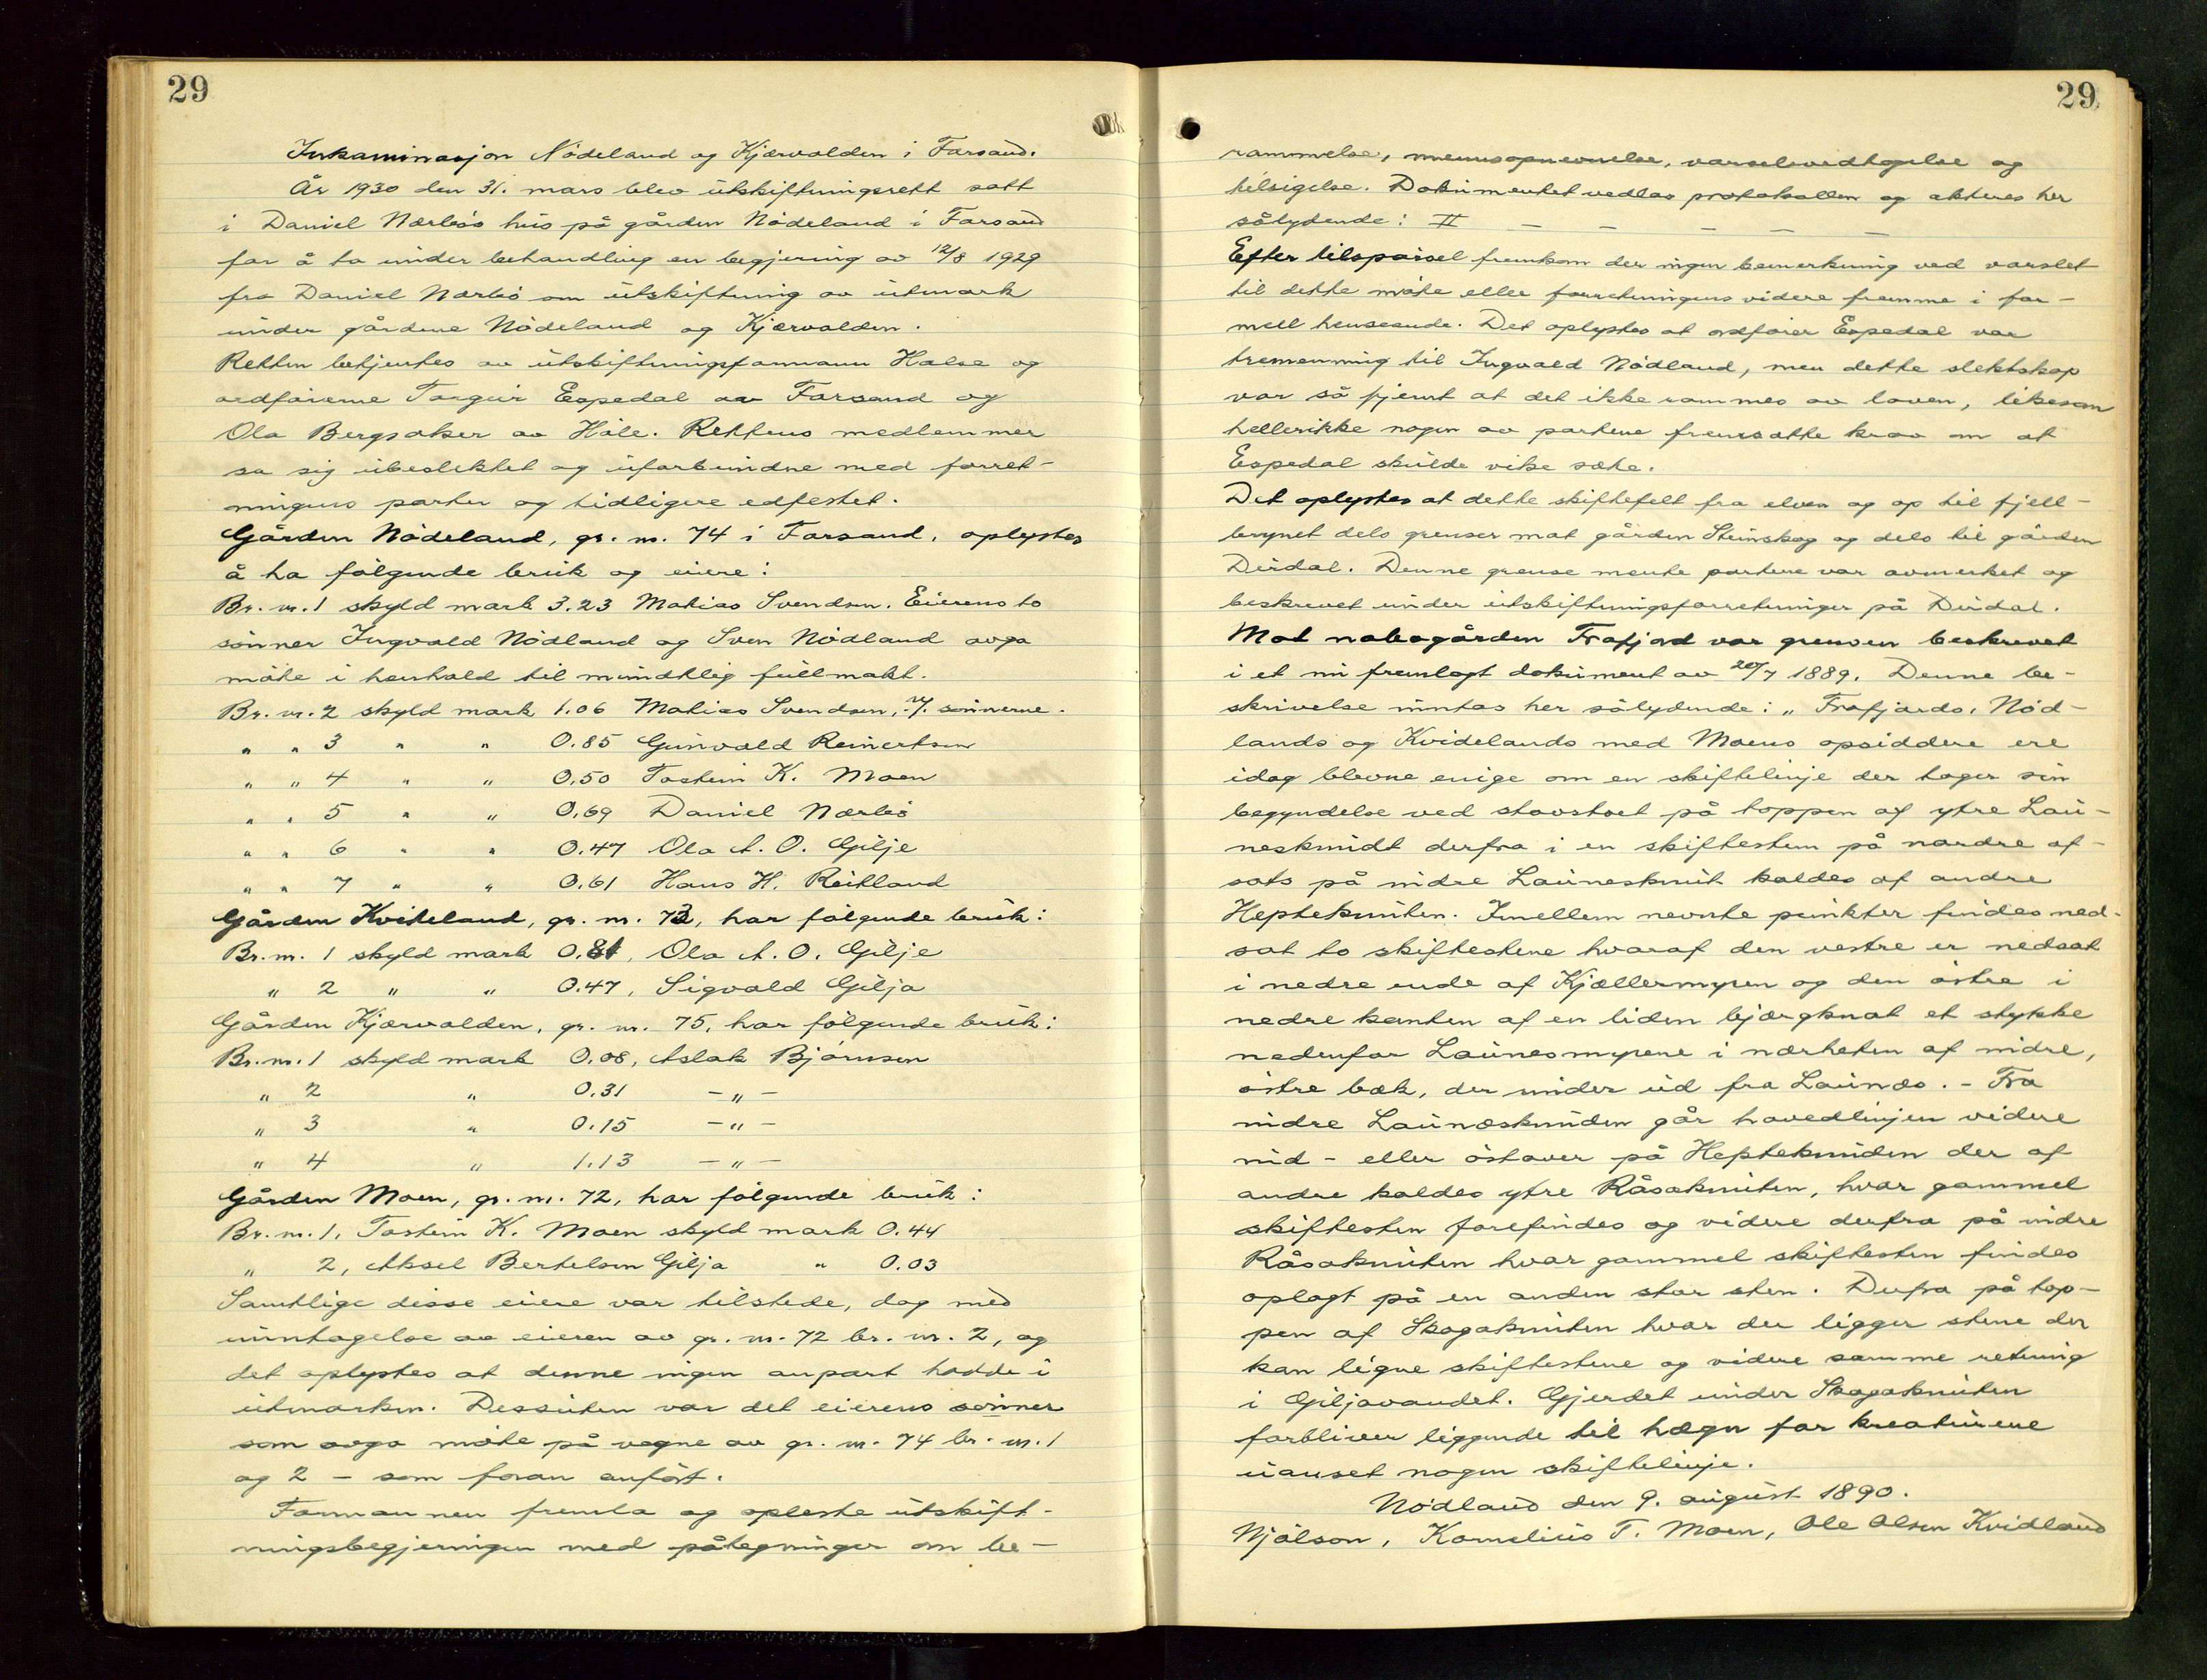 29
Inkaminasjon Nödeland og Kjærvolden i Forsand.
År 1930 den 31. mars blev utskiftningsrett satt
i Daniel Nærbös hus på gården Nödeland i Forsand
for å ta under behandling en begjering av 12/8 1929
fra Daniel Nærbö om utskiftning av utmark
under gårdene Nödeland og Kjærvolden.
Retten betjentes av utskiftningsformann Halse og
ordförerne Torgeir Espedal av Forsand og
Ola Bergsaker av Höle. Rettens medlemmer
sa sig ubeslektet og uforbundne med forret-
ningens parter og tidligere edfestet.
Gården Nödeland, gr. nr. 74 i Forsand, oplystes
å ha fölgende bruk og eiere:
Br. nr. 1 skyld mark 3.23 Matias Svendsen. Eierens to
sönner Ingvald Nödland og Sven Nödland avga
möte i henhold til mundtlig fullmakt.
Br. nr. 2 skyld mark 1.06 Matias Svendsen, v/ sönnerne.
" " 3 " " 0.85 Gunvald Reinertsen
" " 4 " " 0.50 Tostein K. Moen
" " 5 " " 0.69 Daniel Nærbö
" " 6 " " 0.47 Ola A. O. Gilje
" " 7 " " 0.61 Hans H. Reitland
Gården Kviteland, gr. nr. 73, har fölgende bruk:
Br. nr. 1 skyld mark 0.81, Ola A. O. Gilje
" 2 " " 0.47, Sigvald Gilja
Gården Kjærvolden, gr. nr. 75, har fölgende bruk:
Br. nr. 1 skyld mark 0.08, Aslak Björnsen
" 2 " 0.31 - " -
" 3 " 0.15 - " -
" 4 " 1.13 - " -
Gården Moen, gr. nr. 72, har fölgende bruk:
Br. nr. 1, Tostein K. Moen skyld mark 0.44
" 2, Aksel Bertelsen Gilja " 0.03
Samtlige disse eiere var tilstede, dog med
unntagelse av eieren av gr. nr. 72 br. nr. 2, og
det oplystes at denne ingen anpart hadde i
utmarken. Dessuten var det eierens sönner
som avga möte på vegne av gr. nr. 74 br. nr. 1
og 2 - som foran anfört.
Formannen fremla og opleste utskift-
ningsbegjeringen med påtegninger om be-
29
rammelse, mennsopnevnelse, varselsvedtagelse og
tilsigelse. Dokumentet vedlas protokollen og akteres her
sålydende: II - - - - -
Efter tilspörsel fremkom der ingen bemerkning ved varslet
til dette möte eller forretningens videre fremme i for-
mell henseende. Det oplystes at ordförer Espedal var
tremenning til Ingvald Nödland, men dette slektskap
var så fjernt at det ikke rammes av loven, likesom
hellerikke nogen av partene fremsatte krav om at
Espedal skulde vike sæte.
Det oplystes at dette skiftefelt fra elven og op til fjell-
brynet dels grenser mot gården Steinskog og dels til gården
Dirdal. Denne grense mente partene var avmerket og
beskrevet under utskiftningsforretninger på Dirdal.
Mot nabogården Frafjord var grensen beskrevet
i et nu fremlagt dokument av 20/7 1889. Denne be-
skrivelse inntas her sålydende: „ Frafjords, Nöd-
lands og Kvidelands med Moens opsiddere ere
idag blevne enige om en skiftelinje der tager sin
begyndelse ved på toppen af ytre Lau-
nesknudt derfra i en skiftesten på nordre af-
sats på indre Launesknut kaldes af andre
Hepteknuten. Imellem nevnte punkter findes ned-
sat to skiftestene hvoraf den vestre er nedsat
i nedre ende af Kjellermyren og den östre i
nedre kanten af en liden bjærgknat et stykke
nedenfor Launesmyrene i nærheten af indre,
östre bæk, der rinder ud fra Launæs. - Fra
indre Launæsknuden går hovedlinjen videre
ind - eller östover på Hepteknuden der af
andre kaldes ytre Råsaknuten, hvor gammel
skiftesten forefindes og videre derfra på indre
Råsaknuten hvor gammel skiftesten findes
oplagt på en anden stor sten. Derfra på top-
pen af Skogaknuten hvor der ligger stene der
kan ligne skiftestene og videre samme retning
i Giljavandet. Gjerdet under Skogaknuten
forbliver liggende til hægn for kreaturene
uanset nogen skiftelinje.
Nödland den 9. august 1890.
Njålson, Kornelius T. Moen, Ole Olsen Kvidland